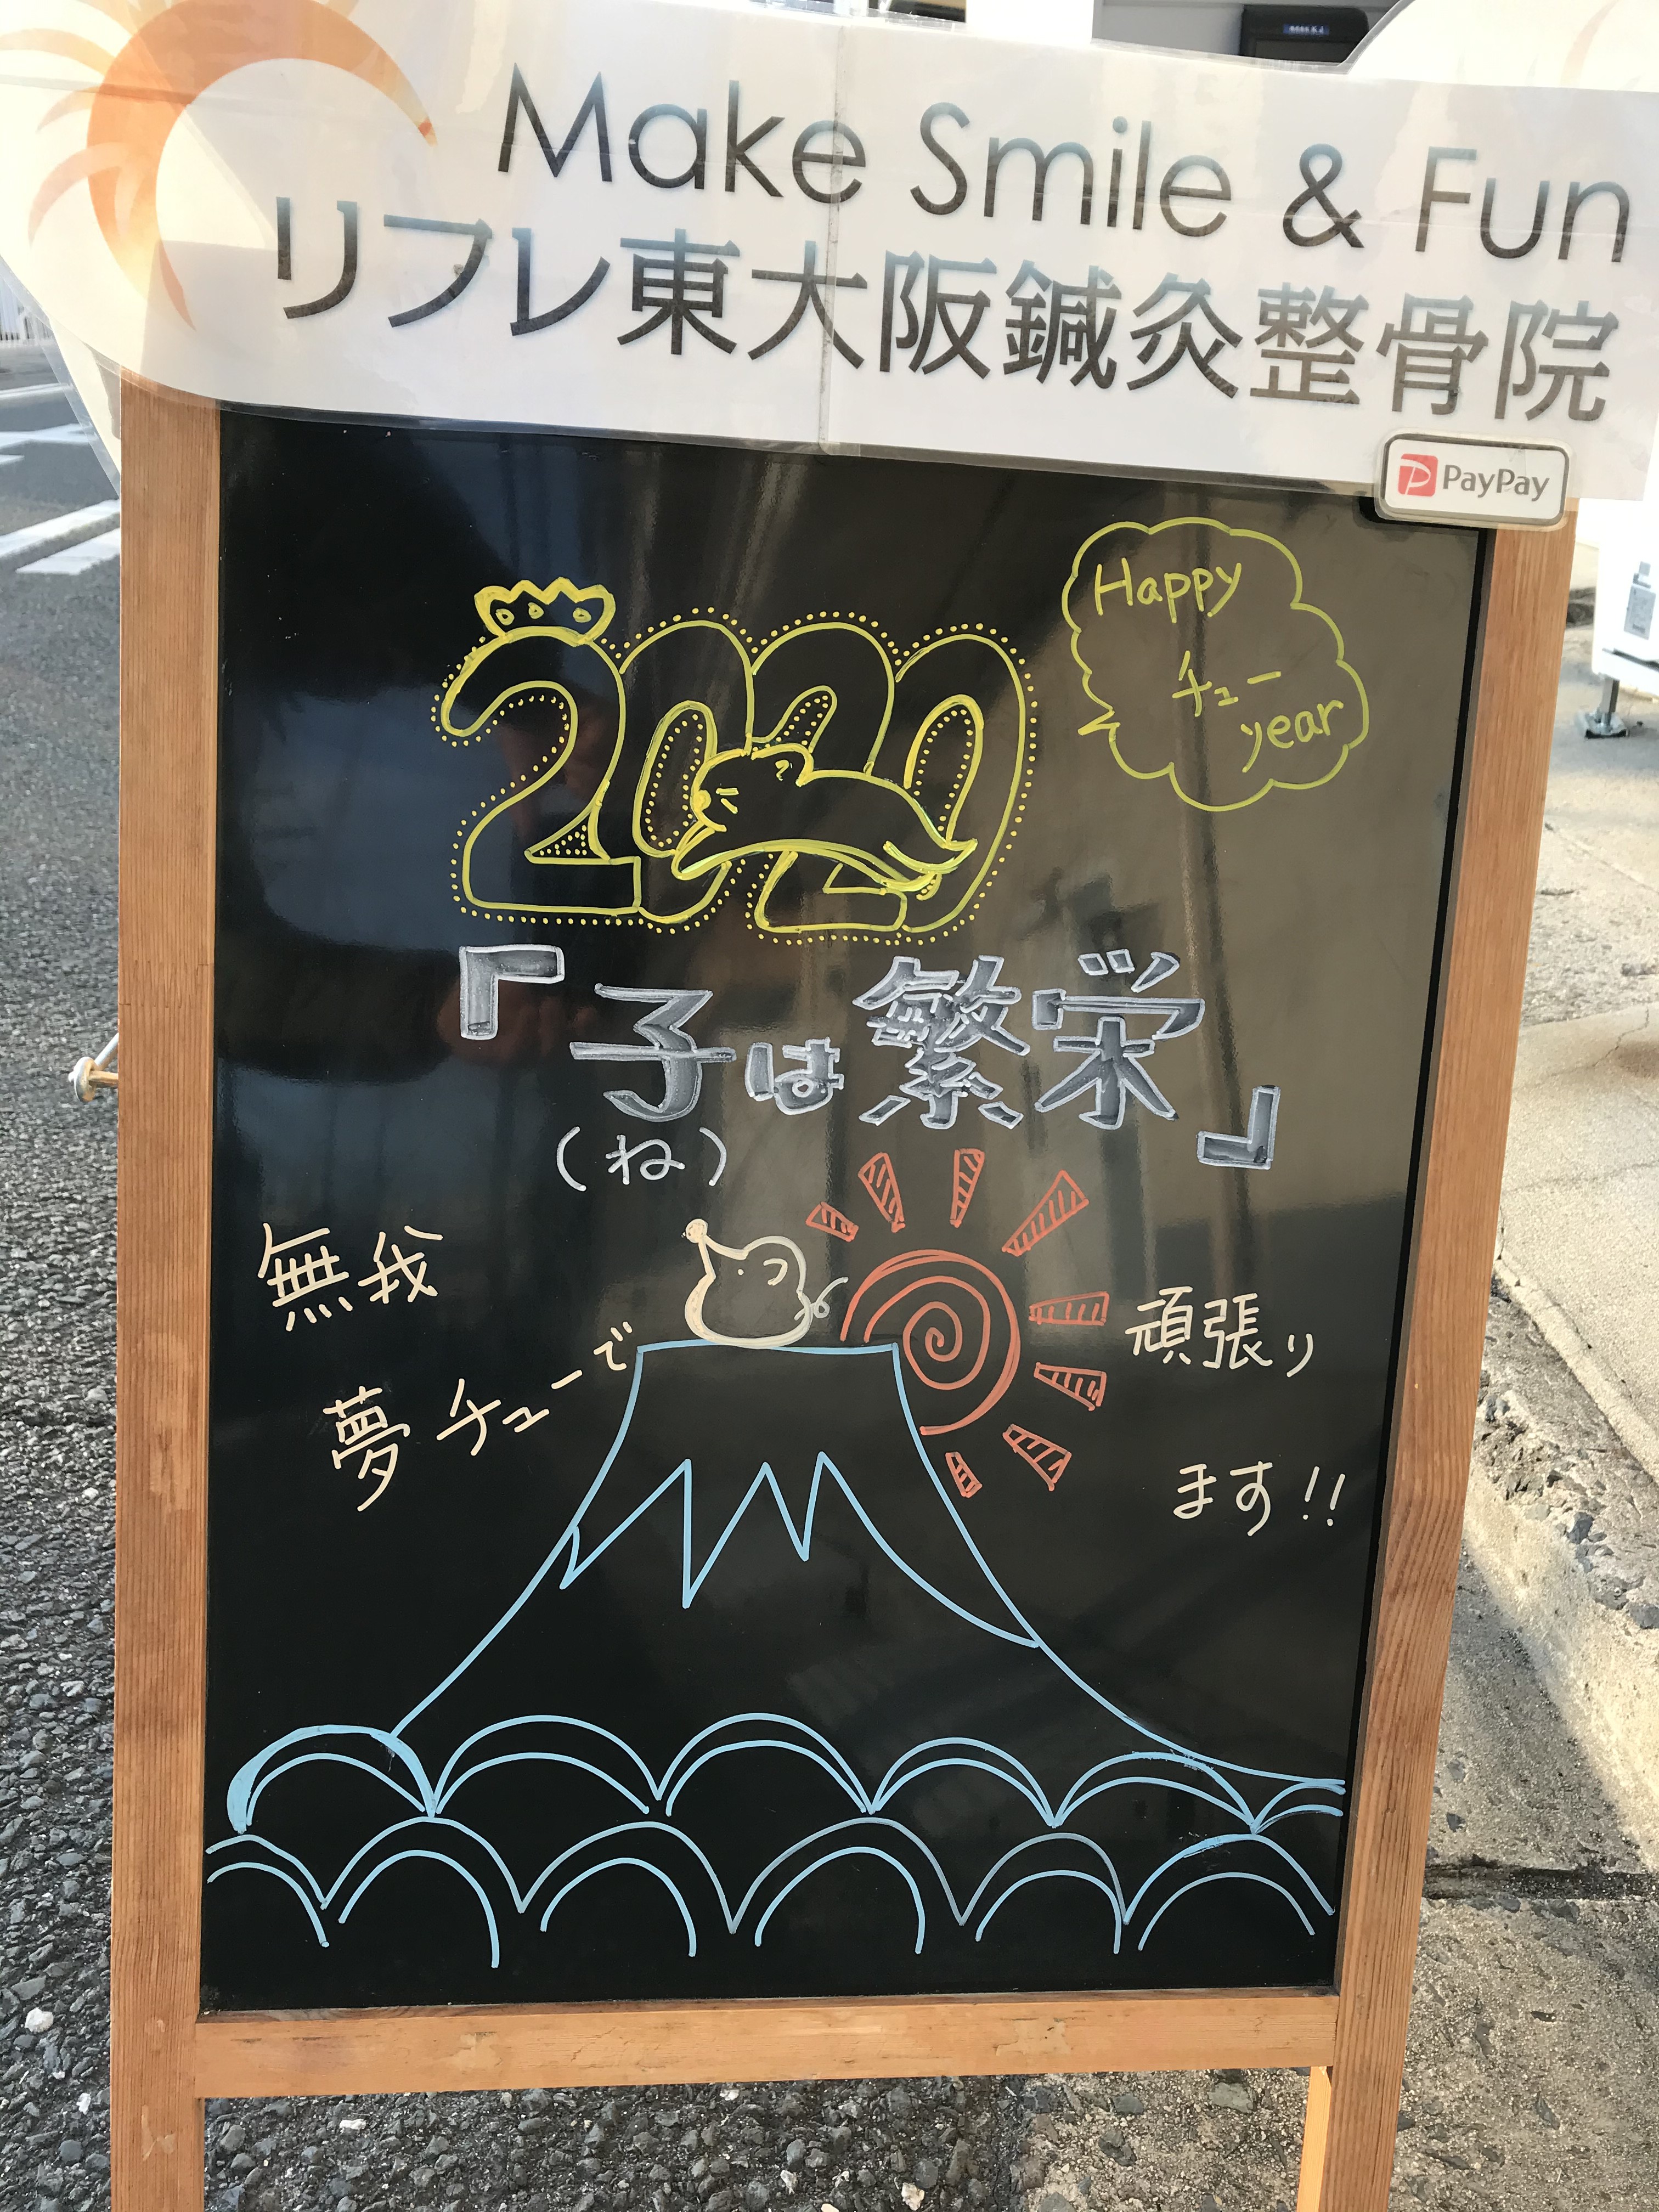 Make Smile & Fun
リフレ東大阪鍼灸整骨院
PayPay
2020
Happy
チュー
year
『子は繁栄』
(ね)
無我
夢チューで
頑張り
ます!!